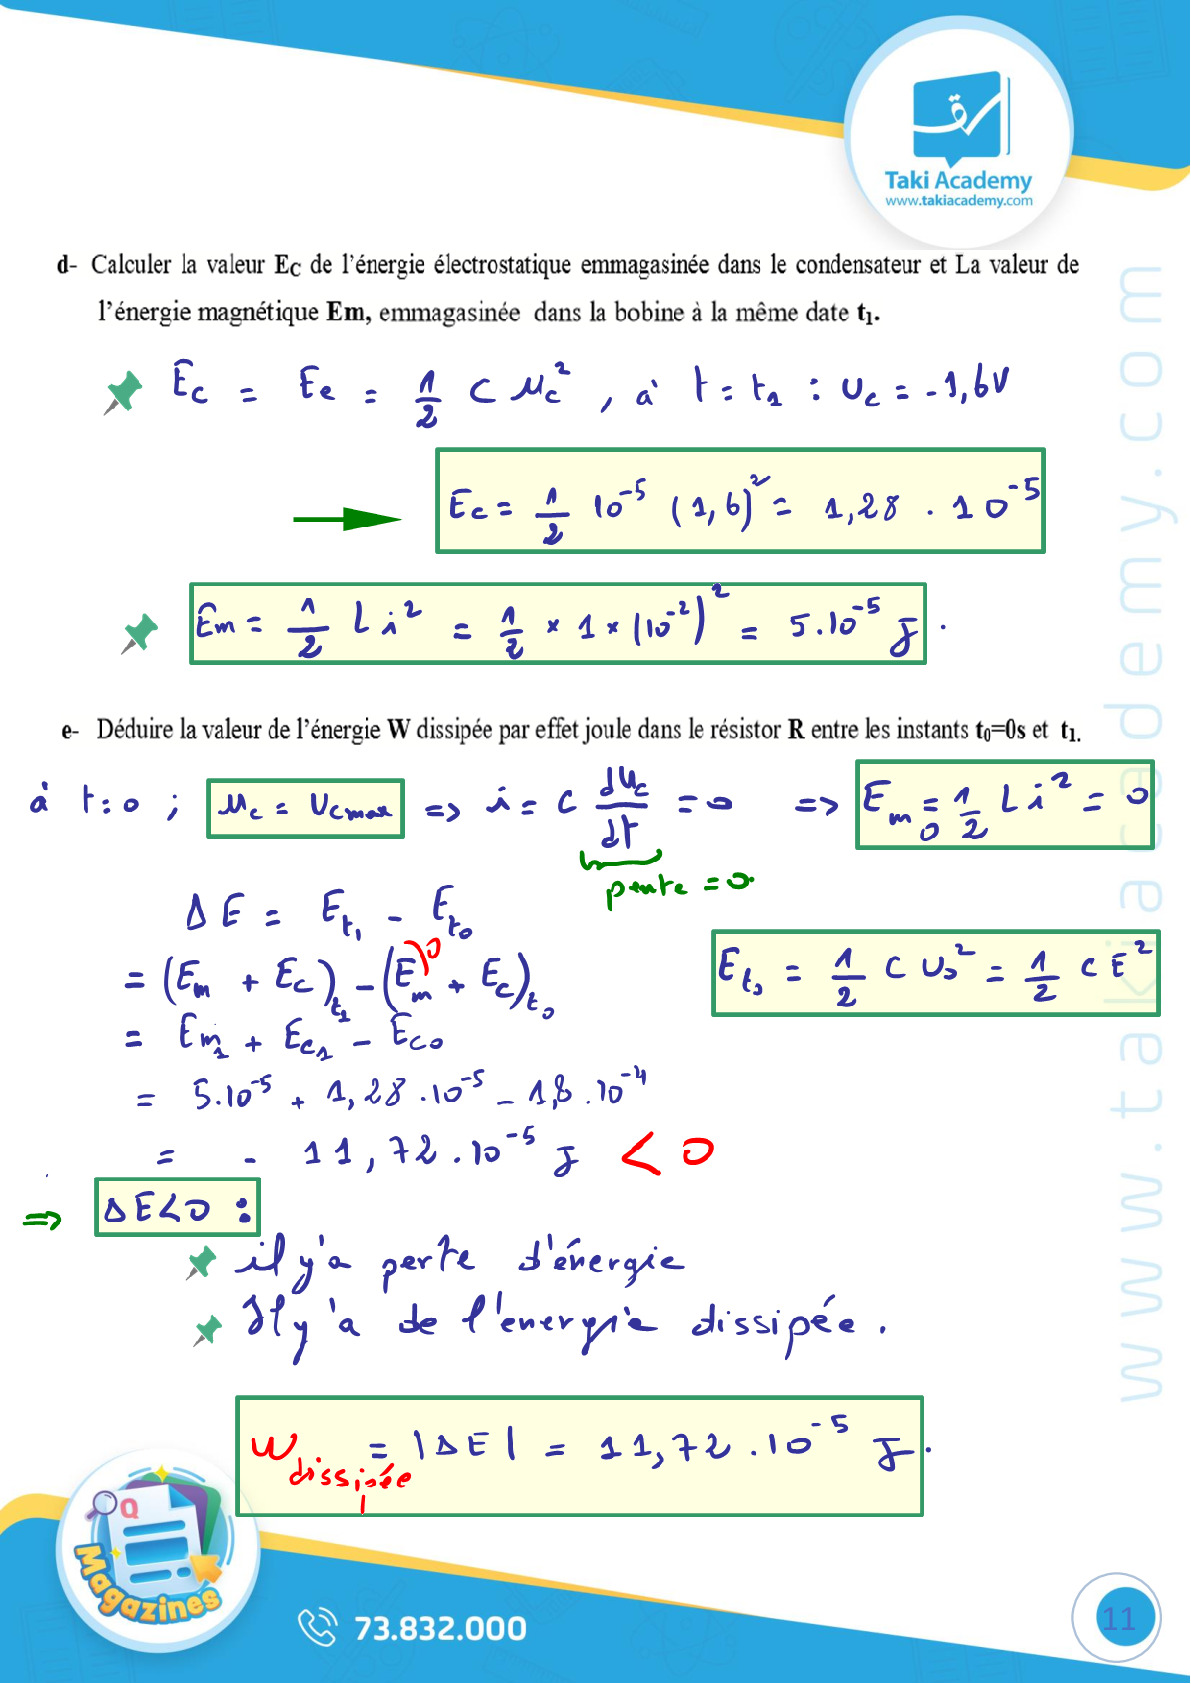 Taki Academy
www.takiacademy.com
d- Calculer la valeur E_C de l'énergie électrostatique emmagasinée dans le condensateur et La valeur de
l'énergie magnétique Em, emmagasinée dans la bobine à la même date t₁.
E_c = E_e = 1/2 C u_c² , à t = t₁ : u_c = -1,6V
E_c = 1/2 10⁻⁵ (1,6)² = 1,28 . 10⁻⁵
E_m = 1/2 L i² = 1/2 × 1 × (10⁻²)² = 5.10⁻⁵ J .
e- Déduire la valeur de l'énergie W dissipée par effet joule dans le résistor R entre les instants t₀=0s et t₁.
à t = 0 ; u_c = U_cmax => i = C du_c/dt = 0 => E_m0 = 1/2 L i² = 0
pente = 0
Δ E = E_t₁ - E_t₀
= (E_m + E_c)_t₁ - (E_m + E_c)_t₀
0
E_t₀ = 1/2 C U₀² = 1/2 C E²
= E_m₁ + E_c₁ - E_c0
= 5.10⁻⁵ + 1,28 .10⁻⁵ - 1,8 .10⁻⁴
= - 11,72 .10⁻⁵ J < 0
=> ΔE<0 :
il y'a perte d'énergie
Il y'a de l'énergie dissipée .
W dissipée = |ΔE| = 11,72 .10⁻⁵ J .
www.takiacademy.com
Q
Magazines
73.832.000
11